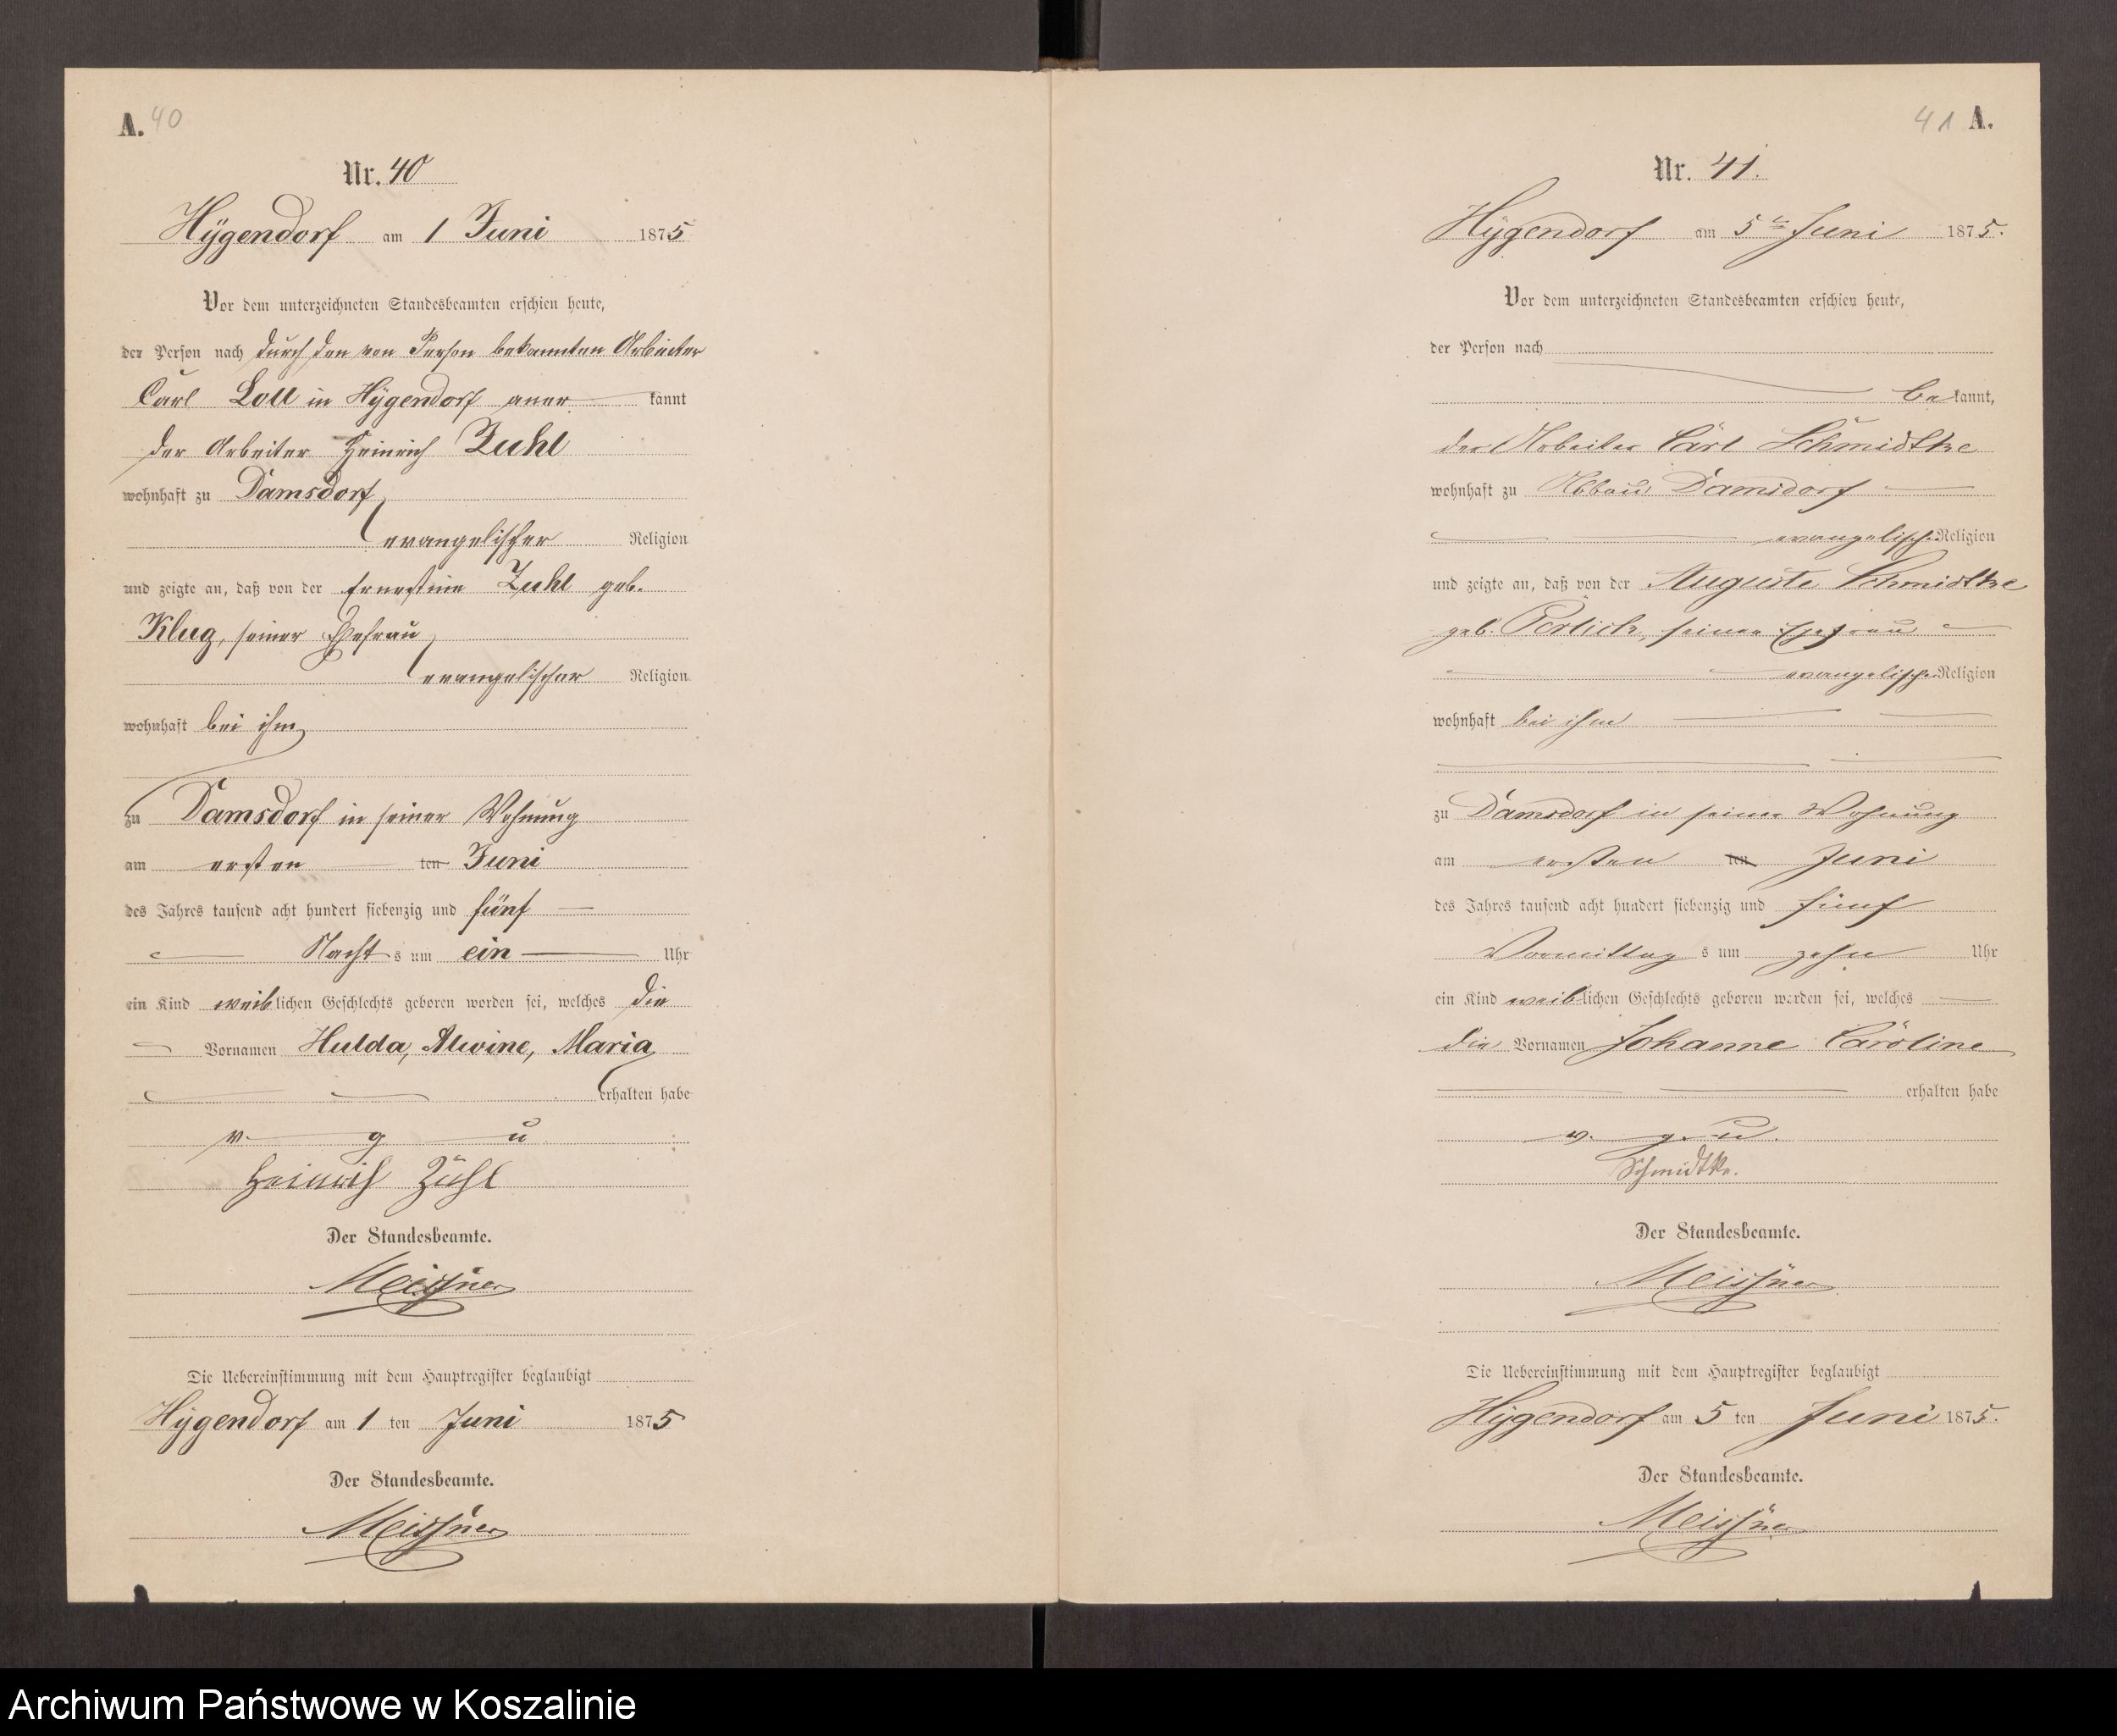 A. 40
Nr. 40
Hÿgendorf am 1 Juni 1875
Vor dem unterzeichneten Standesbeamten erschien heute,
der Person nach durch den von Person bekannten Arbeiter
Carl Loll in Hÿgendorf aner kannt
der Arbeiter Heinrich Zuhl
wohnhaft zu Damsdorf,
evangelischer Religion
und zeigte an, daß von der Ernestine Zuhl geb.
Klug, seiner Ehefrau,
evangelischer Religion
wohnhaft bei ihm,
zu Damsdorf in seiner Wohnung
am ersten ten Juni
des Jahres tausend acht hundert siebenzig und fünf
Nacht s um ein Uhr
ein Kind weiblichen Geschlechts geboren worden sei, welches die
Vornamen Hulda, Alwine, Maria
erhalten habe
v. g u
Heinrich Zühl
Der Standesbeamte.
Meissner
Die Uebereinstimmung mit dem Hauptregister beglaubigt
Hÿgendorf am 1 ten Juni 1875
Der Standesbeamte.
Meissner
41 A.
Nr. 41.
Hÿgendorf am 5 ten Juni 1875.
Vor dem unterzeichneten Standesbeamten erschien heute,
der Person nach
be kannt,
der Arbeiter Carl Schmidtke
wohnhaft zu Abbau Damsdorf
evangelischer Religion
und zeigte an, daß von der Auguste Schmidtke
geb. seiner Ehefrau
evangelischer Religion
wohnhaft bei ihm
zu Damsdorf in seiner Wohnung
am ersten ten Juni
des Jahres tausend acht hundert siebenzig und fünf
Vormittag s um zehn Uhr
ein Kind weiblichen Geschlechts geboren worden sei, welches
die Vornamen Johanne Caroline
erhalten habe
v. g. u.
Schmidtke.
Der Standesbeamte.
Meissner
Die Uebereinstimmung mit dem Hauptregister beglaubigt
Hÿgendorf am 5 ten Juni 1875.
Der Standesbeamte.
Meissner
Archiwum Państwowe w Koszalinie